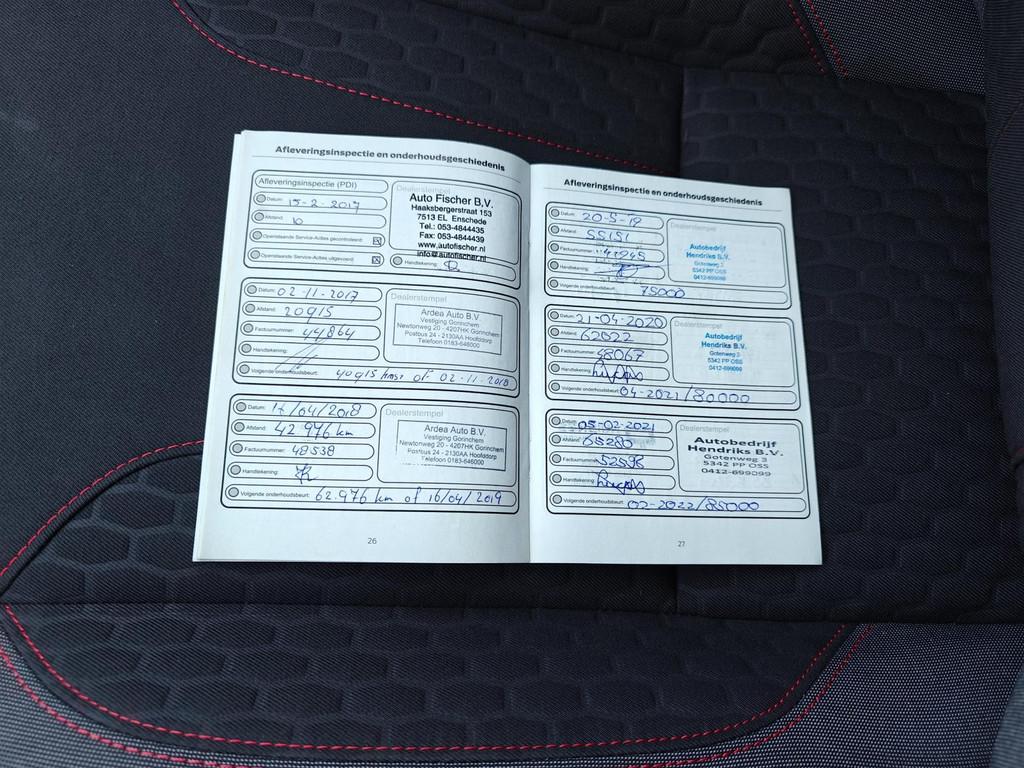 Afleveringsinspectie en onderhoudsgeschiedenis
Afleveringsinspectie (PDI)
Datum: 15-2-2017
Afstand: 10
Openstaande Service-Acties gecontroleerd:
Openstaande Service-Acties uitgevoerd:
Dealerstempel
Auto Fischer B.V.
Haaksbergerstraat 153
7513 EL Enschede
Tel.: 053-4844435
Fax: 053-4844439
www.autofischer.nl
info@autofischer.nl
Handtekening:
Datum: 02-11-2017
Afstand: 20915
Factuurnummer: 44864
Handtekening:
Volgende onderhoudsbeurt: 40915 kms of 02-11-2018
Dealerstempel
Ardea Auto B.V.
Vestiging Gorinchem
Newtonweg 20 - 4207HK Gorinchem
Postbus 24 - 2130AA Hoofddorp
Telefoon 0183-646000
Datum: 17/04/2018
Afstand: 42 976 km
Factuurnummer: 48538
Handtekening:
Volgende onderhoudsbeurt: 62.976 km of 16/04/2019
Dealerstempel
Ardea Auto B.V.
Vestiging Gorinchem
Newtonweg 20 - 4207HK Gorinchem
Postbus 24 - 2130AA Hoofddorp
Telefoon 0183-646000
26
Afleveringsinspectie en onderhoudsgeschiedenis
Datum: 20-5-19
Afstand: 55151
Factuurnummer: 41245
Handtekening:
Volgende onderhoudsbeurt: 75000
Dealerstempel
Autobedrijf
Hendriks B.V.
Gotenweg 3
5342 PP OSS
0412-699099
Datum: 21-04-2020
Afstand: 62022
Factuurnummer: 48067
Handtekening:
Volgende onderhoudsbeurt: 04-2021/80000
Dealerstempel
Autobedrijf
Hendriks B.V.
Gotenweg 3
5342 PP OSS
0412-699099
Datum: 05-02-2021
Afstand: 65280
Factuurnummer: 52596
Handtekening:
Volgende onderhoudsbeurt: 02-2022/85000
Dealerstempel
Autobedrijf
Hendriks B.V.
Gotenweg 3
5342 PP OSS
0412-699099
27